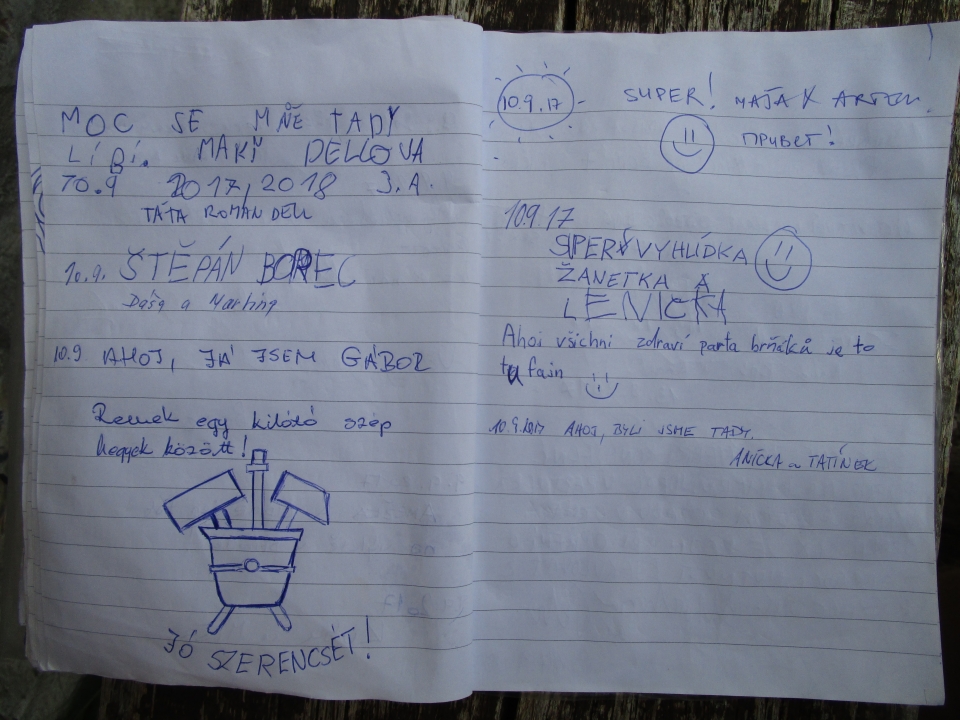 MOC SE MŇE TADY
LÍBÍ. MAKÍ DELLOVA
10.9 2017, 2018 3.A.
TÁTA ROMAN DELL
10.9. ŠTĚPÁN BOREC
Dáša a Martina
10.9 AHOJ, JÁ JSEM GÁBOR
Remek egy kilátó szép
hegyek között!
JÓ SZERENCSÉT!
10.9.17
SUPER! MAŤA X ARTEM.
ПРИВЕТ!
10.9.17
SUPER VYHLÍDKA
ŽANETKA A
LENIČKA
Ahoj všichni zdraví parta brňáků je to
tu fajn
10.9.2017 AHOJ, BYLI JSME TADY.
ANIČKA a TATÍNEK